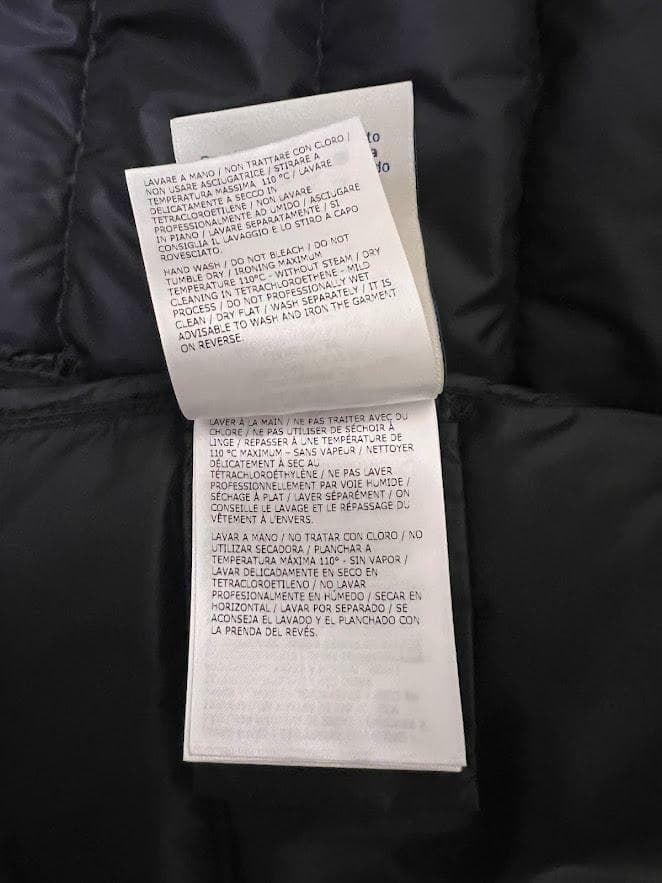 to
a
do
LAVARE A MANO / NON TRATTARE CON CLORO /
NON USARE ASCIUGATRICE / STIRARE A
TEMPERATURA MASSIMA 110 °C / LAVARE
DELICATAMENTE A SECCO IN
TETRACLOROETILENE / NON LAVARE
PROFESSIONALMENTE AD UMIDO / ASCIUGARE
IN PIANO / LAVARE SEPARATAMENTE / SI
CONSIGLIA IL LAVAGGIO E LO STIRO A CAPO
ROVESCIATO.
HAND WASH / DO NOT BLEACH / DO NOT
TUMBLE DRY / IRONING MAXIMUM
TEMPERATURE 110°C - WITHOUT STEAM / DRY
CLEANING IN TETRACHLOROETHENE - MILD
PROCESS / DO NOT PROFESSIONALLY WET
CLEAN / DRY FLAT / WASH SEPARATELY / IT IS
ADVISABLE TO WASH AND IRON THE GARMENT
ON REVERSE.
LAVER À LA MAIN / NE PAS TRAITER AVEC DU
CHLORE / NE PAS UTILISER DE SÉCHOIR À
LINGE / REPASSER À UNE TEMPÉRATURE DE
110 °C MAXIMUM – SANS VAPEUR / NETTOYER
DÉLICATEMENT À SEC AU
TÉTRACHLOROÉTHYLÈNE / NE PAS LAVER
PROFESSIONNELLEMENT PAR VOIE HUMIDE /
SÉCHAGE À PLAT / LAVER SÉPARÉMENT / ON
CONSEILLE LE LAVAGE ET LE RÉPASSAGE DU
VÊTEMENT À L'ENVERS.
LAVAR A MANO / NO TRATAR CON CLORO / NO
UTILIZAR SECADORA / PLANCHAR A
TEMPERATURA MÁXIMA 110° - SIN VAPOR /
LAVAR DELICADAMENTE EN SECO EN
TETRACLOROETILENO / NO LAVAR
PROFESIONALMENTE EN HÚMEDO / SECAR EN
HORIZONTAL / LAVAR POR SEPARADO / SE
ACONSEJA EL LAVADO Y EL PLANCHADO CON
LA PRENDA DEL REVÉS.